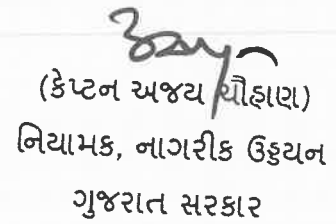 (કેપ્ટન અજય ચૌહાણ)
નિયામક, નાગરીક ઉડ્ડયન
ગુજરાત સરકાર